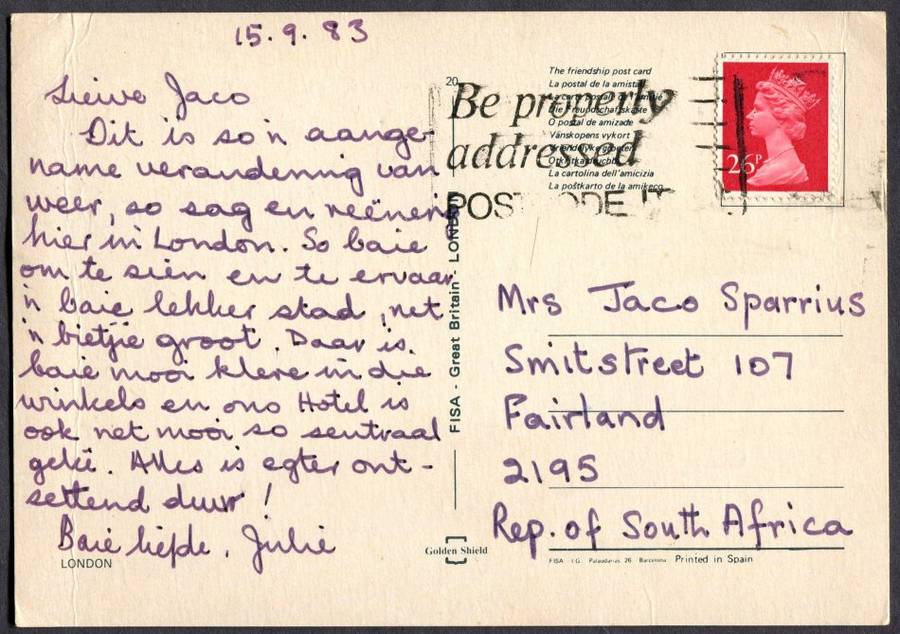 15.9.83
Liewe Jaco
Dit is so'n aange-
name verandering van
weer, so sag en reënerig
hier in London. So baie
om te sien en te ervaar
'n baie lekker stad, net
'n bietjie groot. Daar is
baie mooi klere in die
winkels en ons Hotel is
ook net mooi so sentraal
geleë. Alles is egter ont-
settend duur!
Baie liefde. Julie
LONDON
20
FISA - Great Britain - LONDON
Golden Shield
The friendship post card
La postal de la amistad
La carte postale de l'amitié
Die Freundschaftskarte
O postal de amizade
Vänskopens vykort
Vriendelyke groeten
La cartolina dell'amicizia
La poŝtkarto de la amikeco
Be properly
addressed
POSTCODE IT
26P
Mrs Jaco Sparrius
Smitstreet 107
Fairland
2195
Rep. of South Africa
FISA I.G. Palaudarias 26 Barcelona Printed in Spain